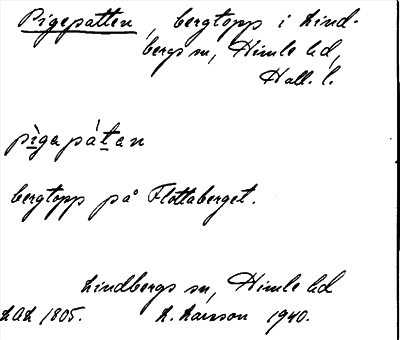 Pigepatten, bergtopp i Lind-
bergs sn, Himle hd,
Hall. l.
pìgapátan
bergtopp på Flottaberget.
Lindbergs sn, Himle hd
LAL 1805. L. Larsson 1940.